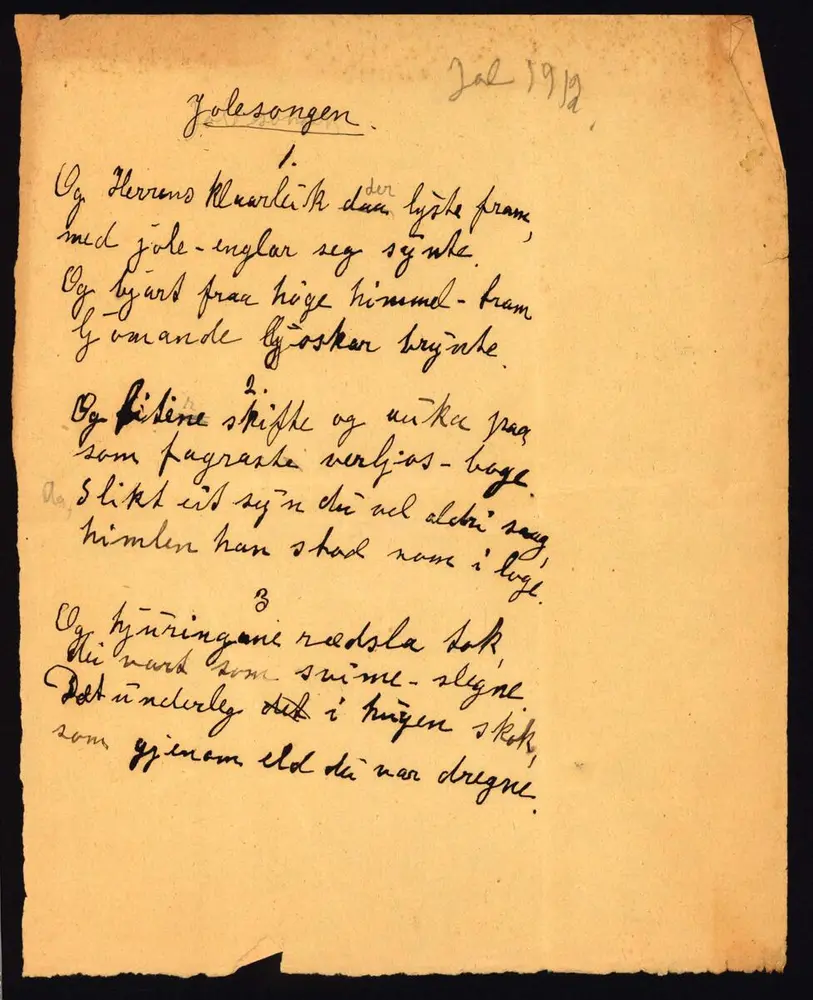 Jol 1912.
Jolesongen.
1.
Og Herrens klaarleik daa der lyste fram,
med jole-englar seg synte.
Og bjart fraa høge himmel-bram
ljomande ljoskar brynte.
2.
Og litine skifte og auka paa,
som fagraste verljos-boge.
Da, Slikt eit syn du vel aldri saag,
himlen han stod som i loge.
3
Og hjuringane rædsla tok,
dei vart som svime-slegne.
Det underleg det i hugen skok,
som gjenom eld dei var dregne.